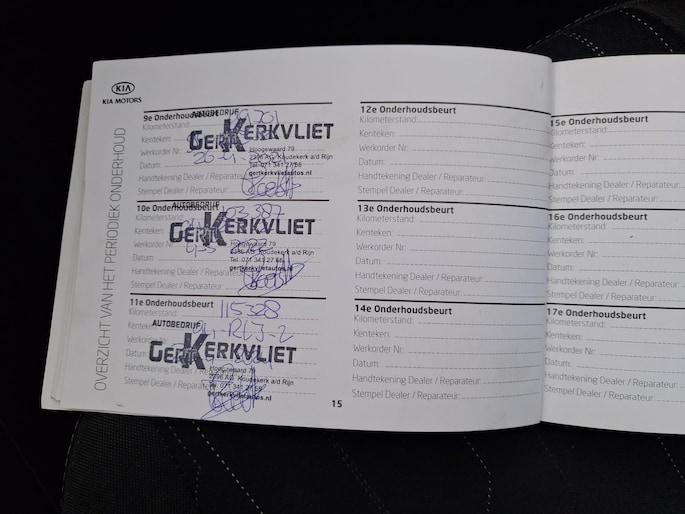 KIA
KIA MOTORS
OVERZICHT VAN HET PERIODIEK ONDERHOUD
9e Onderhoudsbeurt
Kilometerstand:
Kenteken:
Werkorder Nr:
Datum:
Handtekening Dealer / Reparateur:
Stempel Dealer / Reparateur:
AUTOBEDRIJF
GER KERKVLIET
Hoogewaard 79
2396 AG Koudekerk a/d Rijn
Tel. 071 341 27 66
gertkerkvlietautos.nl
10e Onderhoudsbeurt
Kilometerstand: 103.387
Kenteken:
Werkorder
Datum:
Handtekening Dealer / Reparateur
Stempel Dealer / Reparateur:
AUTOBEDRIJF
GER KERKVLIET
Hoogewaard 79
2396 AG Koudekerk a/d Rijn
Tel. 071 341 27 66
gertkerkvlietautos.nl
11e Onderhoudsbeurt
Kilometerstand: 115328
Kenteken: -RLJ-2
Werkorder
Datum
Handtekening Dealer / Reparateur
Stempel Dealer / Reparateur:
AUTOBEDRIJF
GER KERKVLIET
Hoogewaard 79
2396 AG Koudekerk a/d Rijn
Tel. 071 341 27 66
gertkerkvlietautos.nl
12e Onderhoudsbeurt
Kilometerstand:
Kenteken:
Werkorder Nr:
Datum:
Handtekening Dealer / Reparateur:
Stempel Dealer / Reparateur:
13e Onderhoudsbeurt
Kilometerstand:
Kenteken:
Werkorder Nr:
Datum:
Handtekening Dealer / Reparateur:
Stempel Dealer / Reparateur:
14e Onderhoudsbeurt
Kilometerstand:
Kenteken:
Werkorder Nr:
Datum:
Handtekening Dealer / Reparateur:
Stempel Dealer / Reparateur:
15
15e Onderhoudsbeurt
Kilometerstand:
Kenteken:
Werkorder Nr:
Datum:
Handtekening Dealer / Reparateur:
Stempel Dealer / Reparateur:
16e Onderhoudsbeurt
Kilometerstand:
Kenteken:
Werkorder Nr:
Datum:
Handtekening Dealer / Reparateur:
Stempel Dealer / Reparateur:
17e Onderhoudsbeurt
Kilometerstand:
Kenteken:
Werkorder Nr:
Datum:
Handtekening Dealer / Reparateur:
Stempel Dealer / Reparateur: